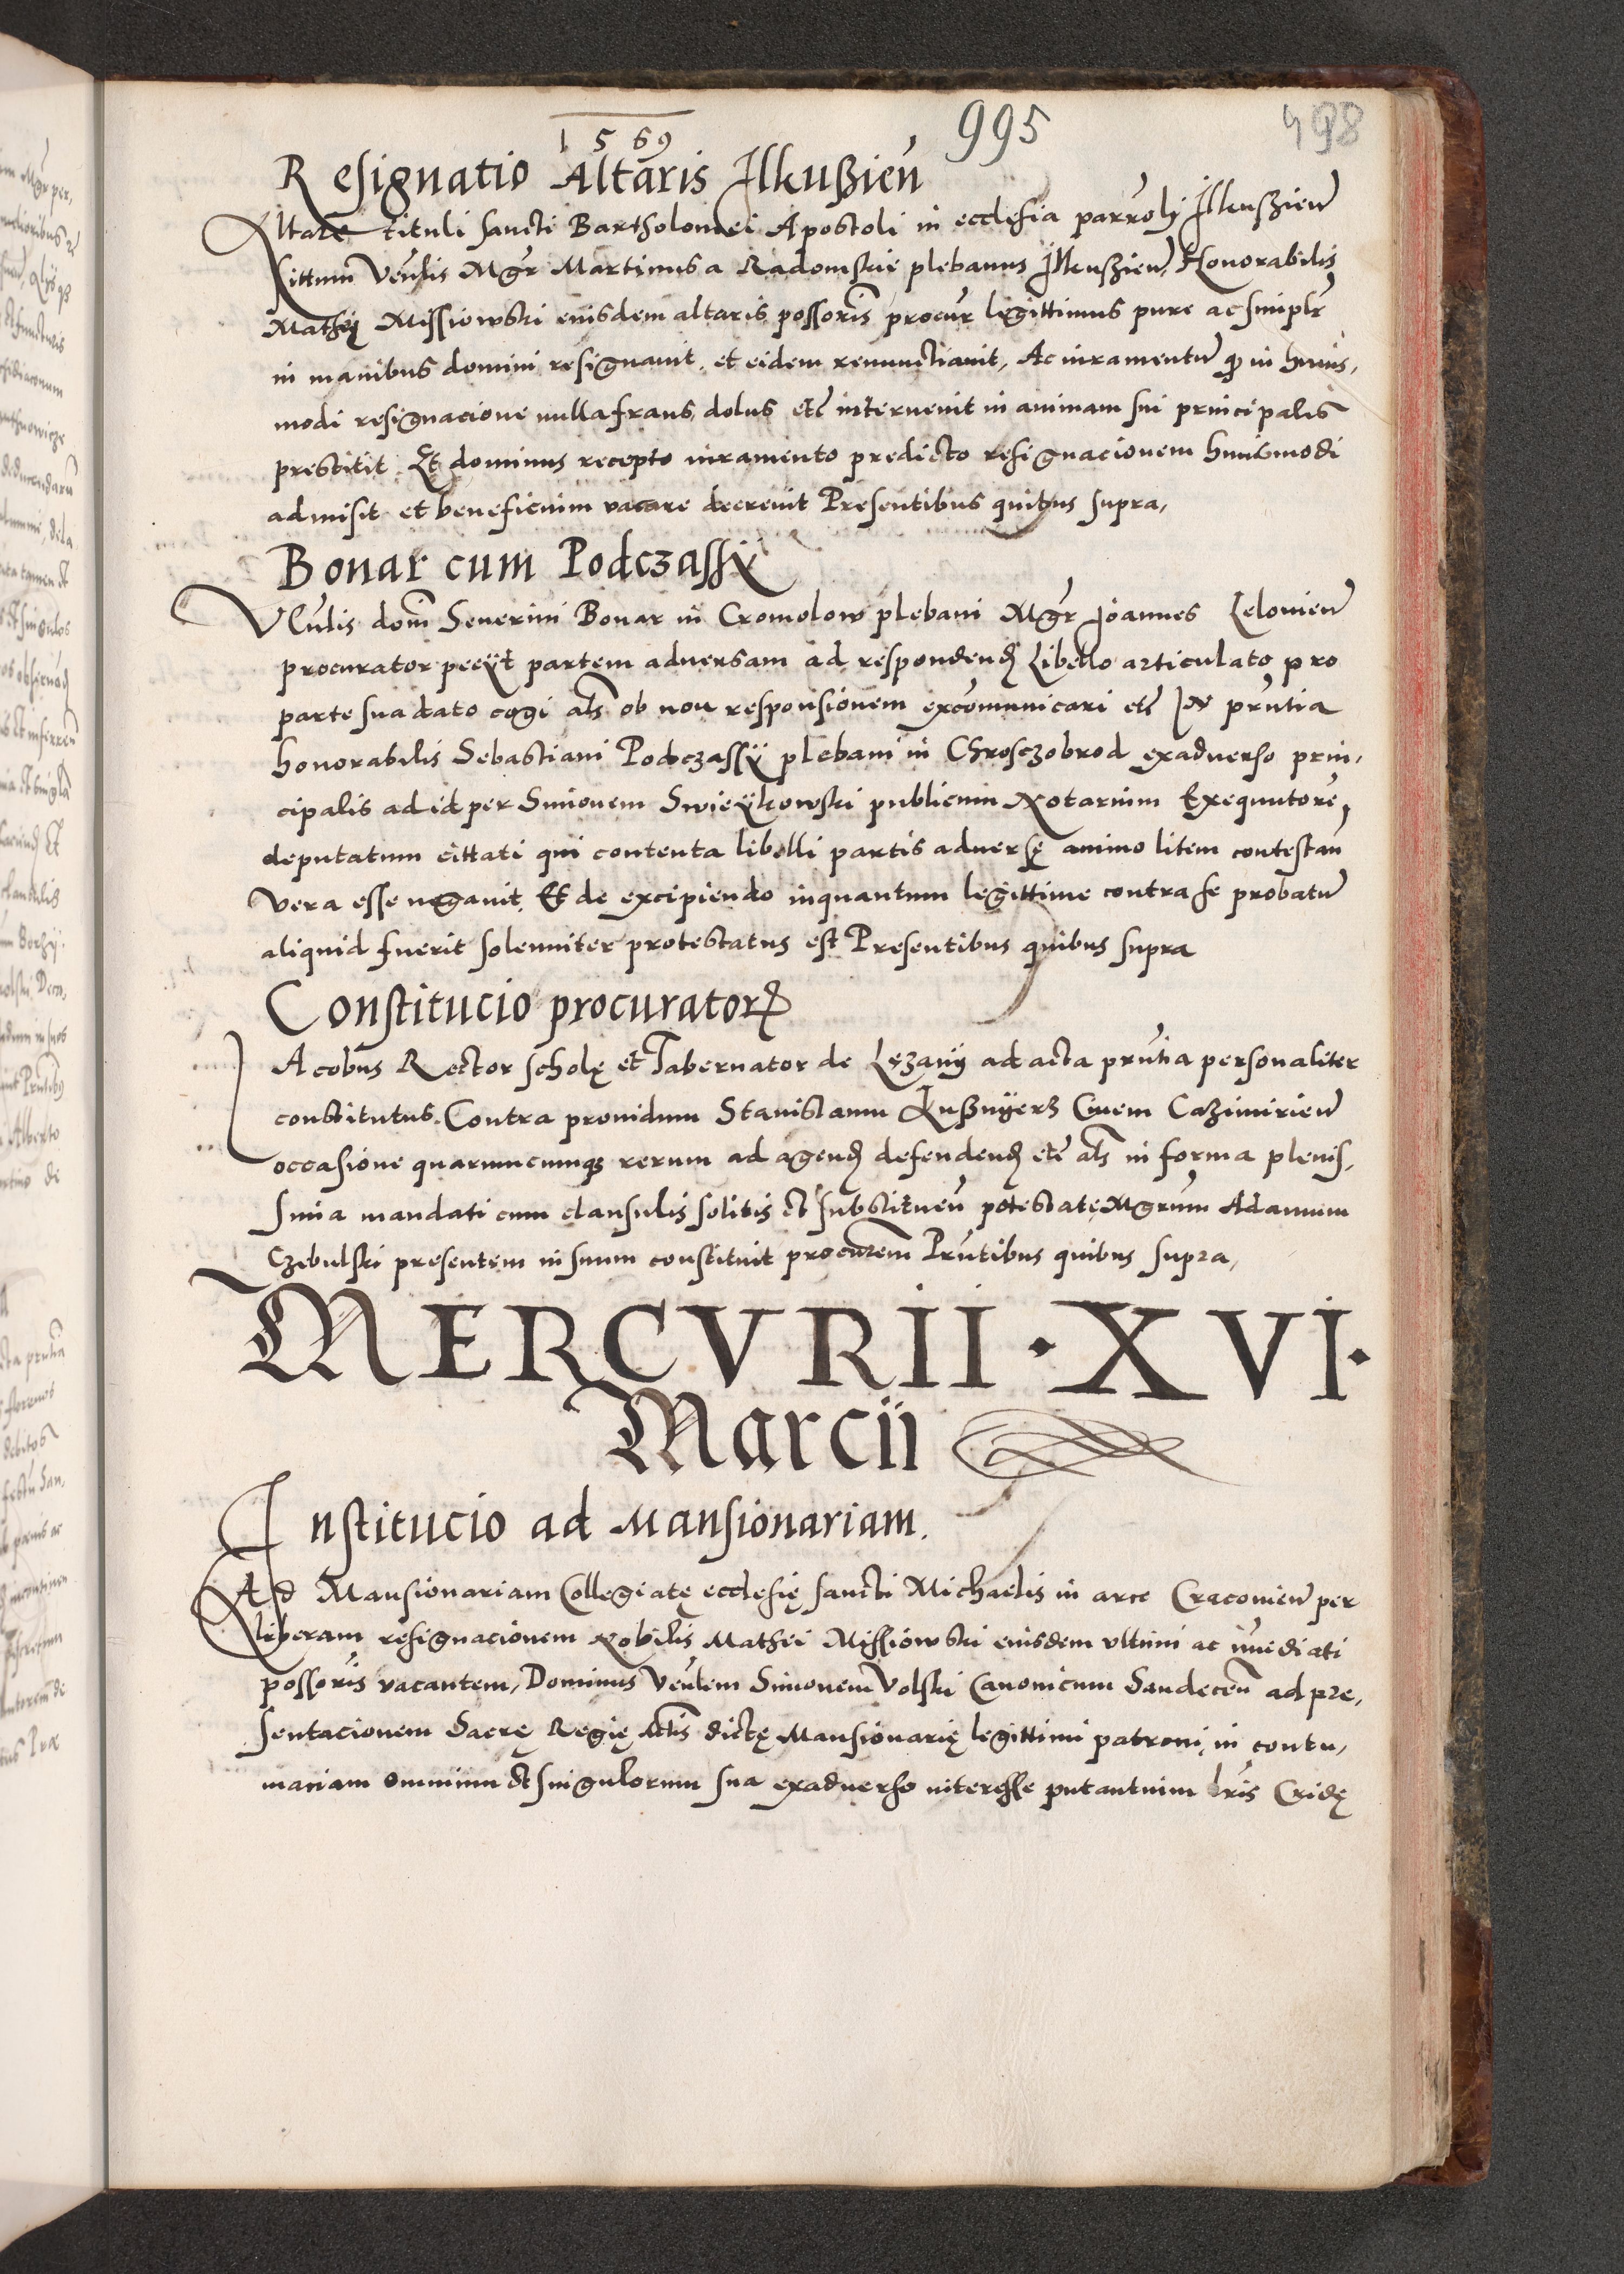 1569
995
498
Resignatio Altaris Ilkußień
Altare tituli sancti Bartholomei Apostoli in ecclesia parrolj Ilkußień
sittum Veńlis Mgr Martinus a Radomskie plebanus Ilkußień, Honorabilis
Mathęj Missiowski eiusdem altaris possoris procur legittimus pure ac simplr
in manibus domini resignauit, et eidem renunctiauit, Ac iuramentū qȝ in huius,
modi resignacione nulla fraus dolus etc interuenit in animam sui principalis
prestitit. Et dominus recepto iuramento predicto resignacionem huiusmodi
admisit et beneficium vacare decreuit Presentibus quibus supra,
Bonar cum Podczassÿ
Vēlis doīn Seuerini Bonar in Cromolow plebani Mgr Joannes Leloviēn
procurator peeÿt partem aduersam ad respondendȝ Libello articulato pro
parte sua dato cogi als ob non responsionem excomunicari etc In prutia
honorabilis Sebastiani Podczassÿ plebani in Chrosczobrod exaduerso prin,
cipalis ad id per Simonem Swieÿkowski publicum Notarium Exequutorē,
deputatum cittati qui contenta libelli partis aduersę animo litem contestan̄
vera esse negauit, Et de excipiendo inquantum legittime contra se probatū
aliquid fuerit solenniter protestatus est Presentibus quibus supra
Constitucio procuratorȝ
Iacobus Rector scholę et Tabernator de Lęzanÿ ad acta prutia personaliter
constitutus. Contra prouidum Stanislaum Kußnÿerz Ciuem Cazimiriēn
occasione quarumcumqȝ rerum ad agendȝ defendendȝ etc als in forma plenis,
sima mandati cum clausulis solitis et substituēn potestatę Mgrum Adamum
Czebulski presentem in suum constituit procurem Prutibus quibus supra,
MERCVRII · XVI ·
Marcii
Institucio ad Mansionariam.
Ad Mansionariam Collegiatę ecclesię sancti Michaelis in arce Cracouiēn per
liberam resignacionem Nobilis Mathei Missiowski eiusdem vltimi ac īmediati
possoris vacantem, Dominus Veńlem Simonem Volski Canonicum Sandeceń ad pre,
sentacionem Sacrę Regię Mtis dictę Mansionarię legittimi patroni, in contu,
maciam omnium et singulorum sua exaduerso interesse putantium lris Cridę